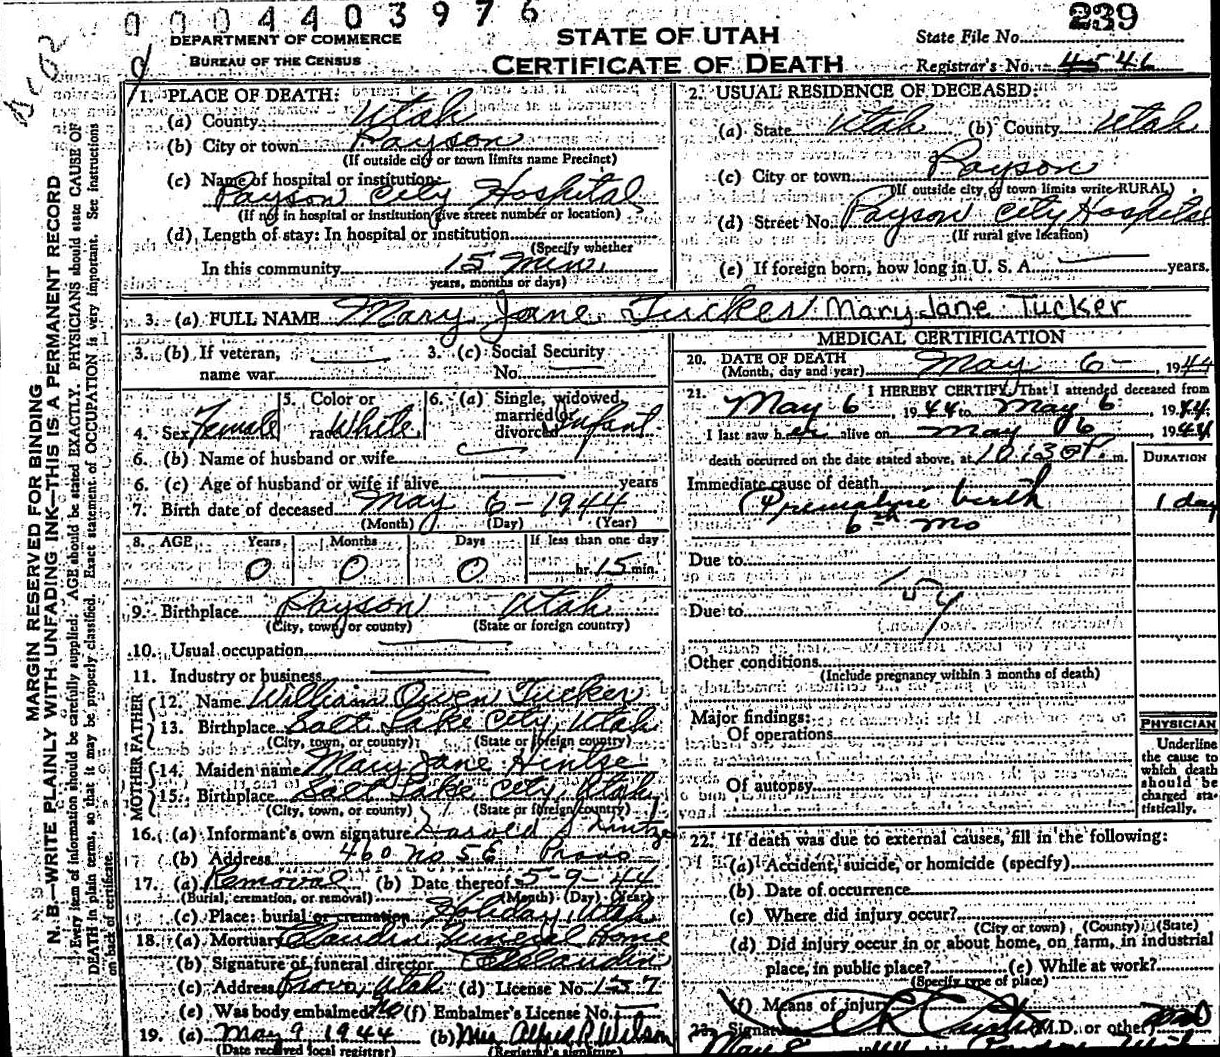 0 0 0 4 4 0 3 9 7 6
239
DEPARTMENT OF COMMERCE
BUREAU OF THE CENSUS
STATE OF UTAH
CERTIFICATE OF DEATH
State File No.
Registrar's No. 45 46
MARGIN RESERVED FOR BINDING
N. B.—WRITE PLAINLY WITH UNFADING INK—THIS IS A PERMANENT RECORD
Every item of information should be carefully supplied. AGE should be stated EXACTLY. PHYSICIANS should state CAUSE OF
DEATH in plain terms, so that it may be properly classified. Exact statement of OCCUPATION is very important. See instructions
on back of certificate.
1. PLACE OF DEATH:
(a) County Utah
(b) City or town Payson
(If outside city or town limits name Precinct)
(c) Name of hospital or institution:
Payson City Hospital
(If not in hospital or institution give street number or location)
(d) Length of stay: In hospital or institution
(Specify whether
In this community 15 min.
years, months or days)
2. USUAL RESIDENCE OF DECEASED:
(a) State Utah (b) County Utah
(c) City or town Payson
(If outside city or town limits write RURAL)
(d) Street No. Payson City Hospital
(If rural give location)
(e) If foreign born, how long in U. S. A. years.
3. (a) FULL NAME Mary Jane Tucker Mary Jane Tucker
3. (b) If veteran, name war
3. (c) Social Security No.
4. Sex Female
5. Color or race White
6. (a) Single, widowed, married or divorced Infant
6. (b) Name of husband or wife
6. (c) Age of husband or wife if alive years
7. Birth date of deceased May 6 - 1944
(Month) (Day) (Year)
8. AGE Years Months Days If less than one day
0 0 0 hr. 15 min.
9. Birthplace Payson Utah
(City, town, or county) (State or foreign country)
10. Usual occupation
11. Industry or business
FATHER
12. Name William Owen Tucker
13. Birthplace Salt Lake City, Utah
(City, town, or county) (State or foreign country)
MOTHER
14. Maiden name Mary Jane Hintze
15. Birthplace Salt Lake City, Utah
(City, town, or county) (State or foreign country)
16. (a) Informant's own signature Harold S Hintze
(b) Address 460 No 5 E Provo
17. (a) Removal (b) Date thereof 5-9-44
(Burial, cremation, or removal) (Month) (Day) (Year)
(c) Place: burial or cremation Holiday, Utah
18. (a) Mortuary Claudin Funeral Home
(b) Signature of funeral director Claudin
(c) Address Provo, Utah (d) License No. 157
(e) Was body embalmed? No (f) Embalmer's License No.
19. (a) May 9 1944 (b) Mrs Alfred R Wilson
(Date received local registrar) (Registrar's signature)
MEDICAL CERTIFICATION
20. DATE OF DEATH May 6 - , 1944
(Month, day and year)
21. I HEREBY CERTIFY, That I attended deceased from
May 6 , 1944 to May 6 , 1944.
I last saw her alive on May 6 , 1944
death occurred on the date stated above, at 10:30 P. m.
DURATION
Immediate cause of death
Premature birth 1 day
6th mo
Due to
Due to
Other conditions
(Include pregnancy within 3 months of death)
Major findings:
Of operations
Of autopsy
PHYSICIAN
Underline
the cause to
which death
should be
charged sta-
tistically.
22. If death was due to external causes, fill in the following:
(a) Accident, suicide, or homicide (specify)
(b) Date of occurrence
(c) Where did injury occur?
(City or town) (County) (State)
(d) Did injury occur in or about home, on farm, in industrial
place, in public place? (e) While at work?
(Specify type of place)
(f) Means of injury
23. Signature (M.D. or other) MD
May 8